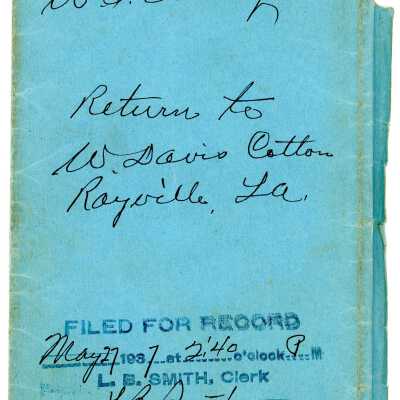 Return to
W. Davis Cotton
Rayville, La.
FILED FOR RECORD
May 27 1937 at 2:40 o'clock P M
L. B. SMITH, Clerk